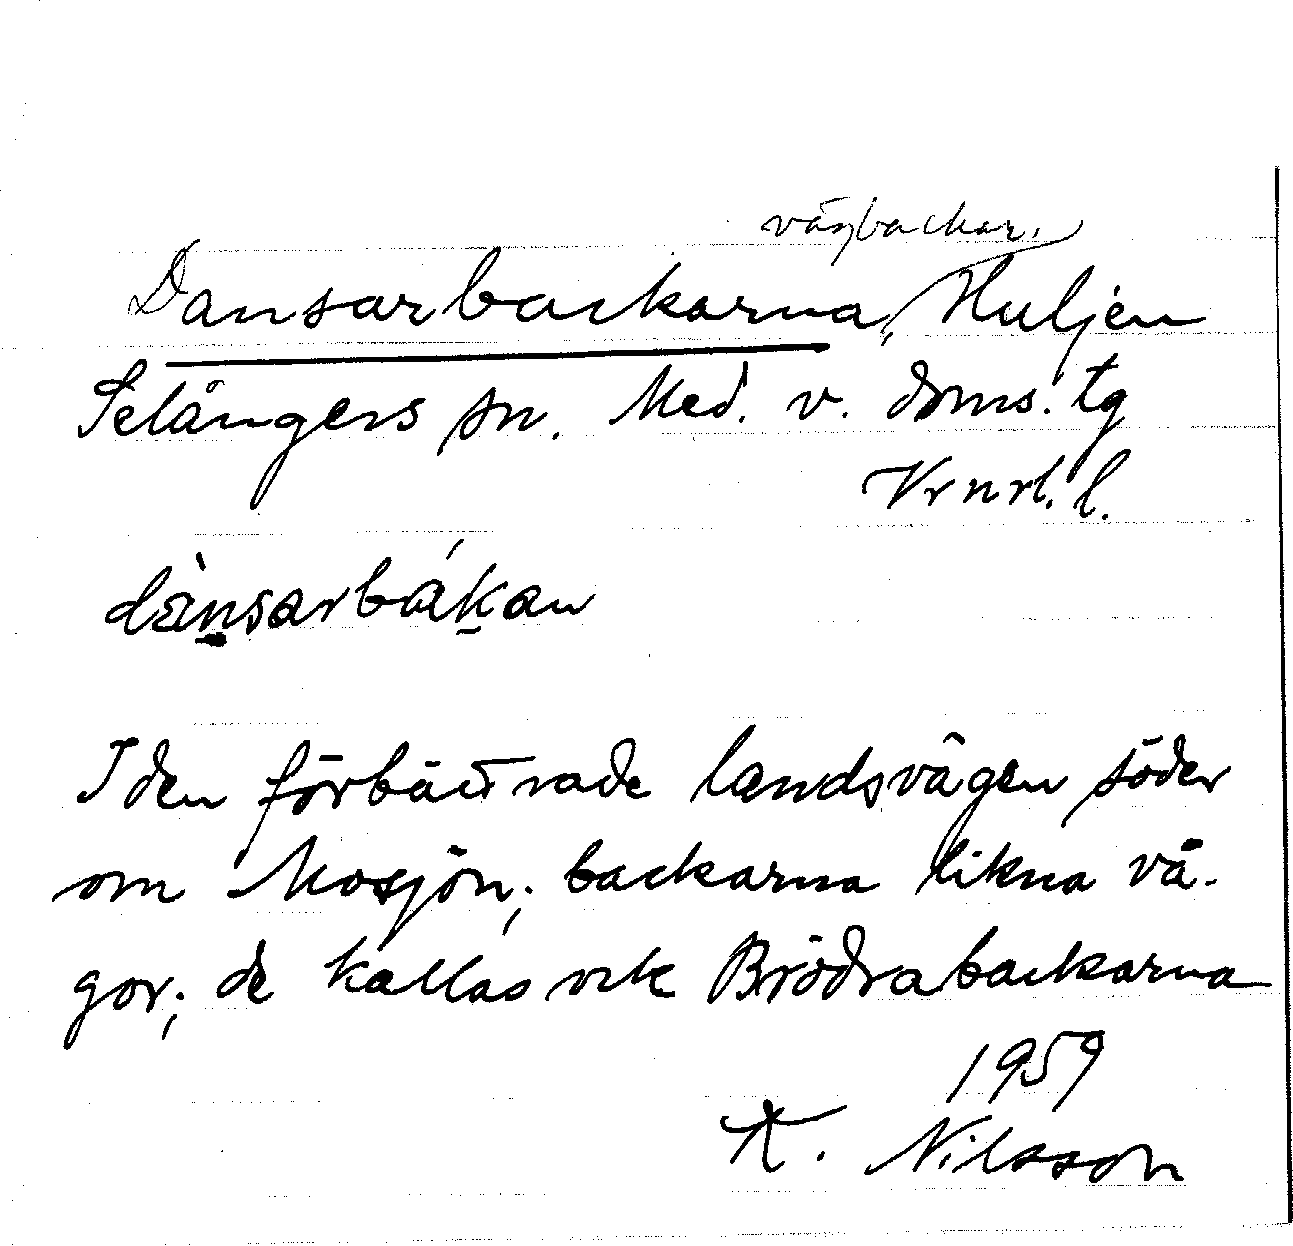 vägbackar,
Dansarbackarna, Huljen
Selångers sn. Med. v. doms. tg
Vrnrl. l.
dànsarbákan
I den förbättrade landsvägen söder
om Mosjön; backarna likna vå-
gor; de kallas ock Brödrabackarna
1959
K. Nilsson